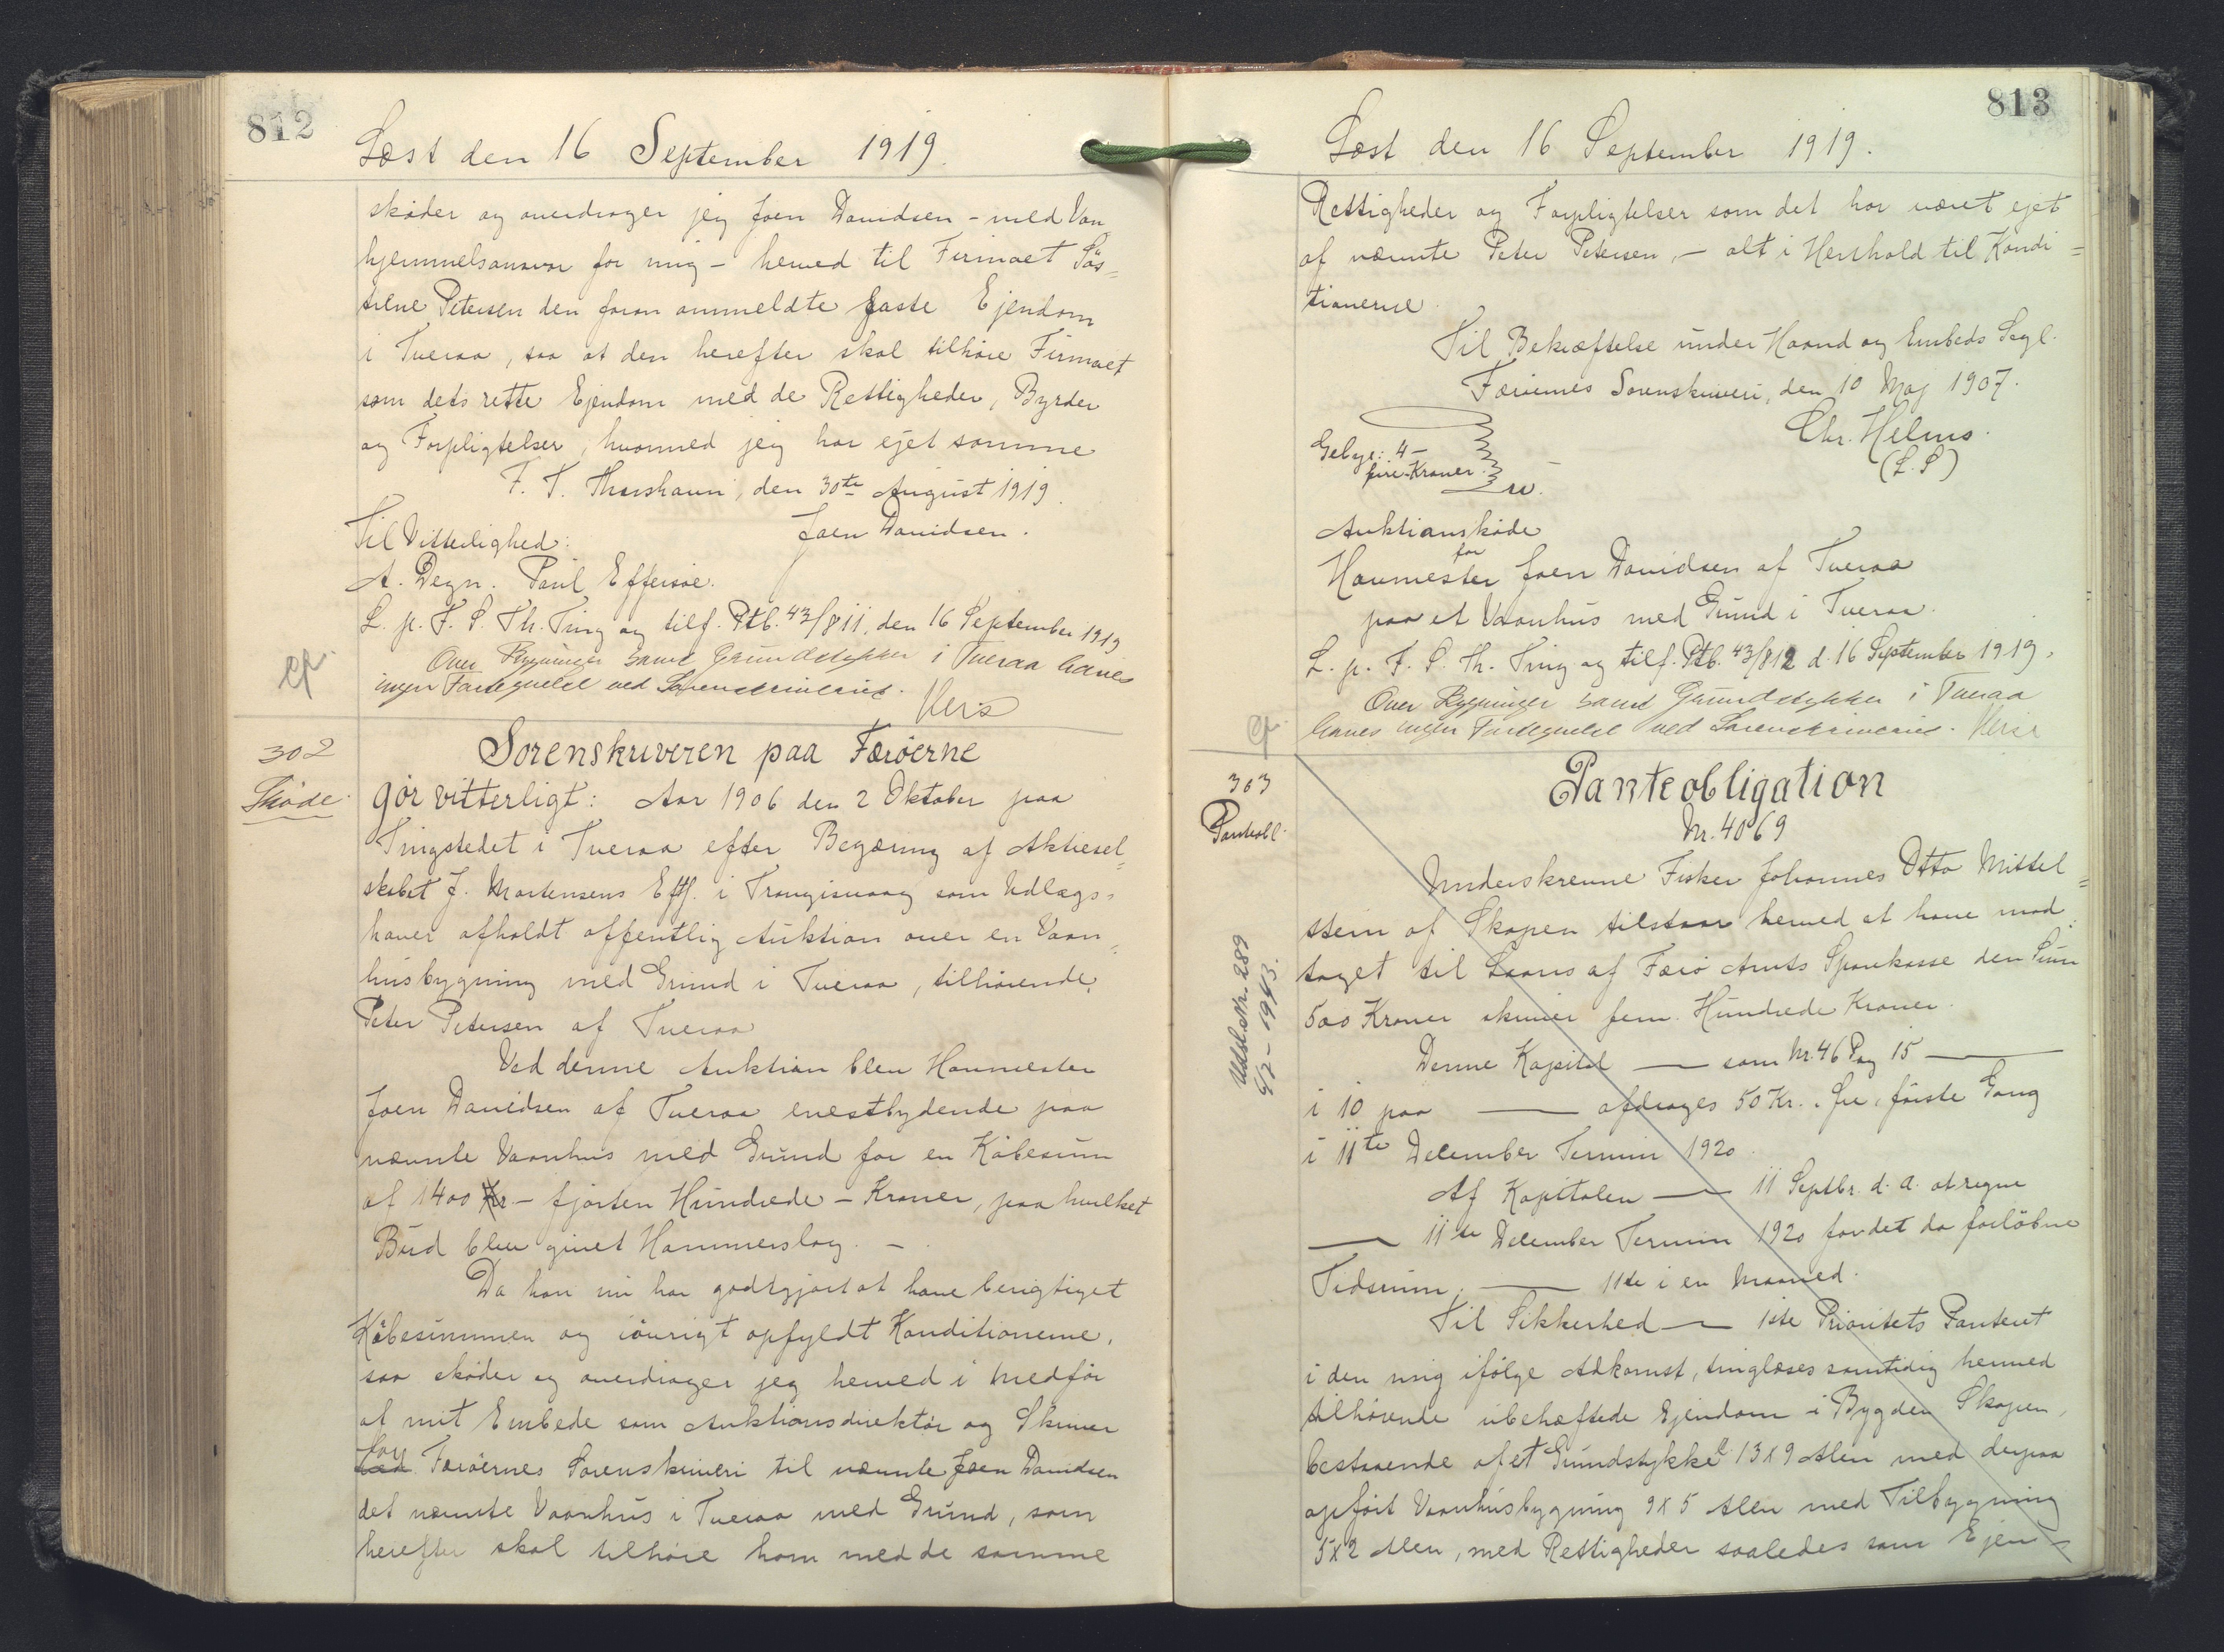 812
Læst den 16 September 1919.
skøder og overdrager jeg Joen Davidsen - med Van
hjemmelsansvar for mig - herved til Firmaet Søs=
trene Petersen den foran ommeldte faste Ejendom
i Tveraa, saa at den herefter skal tilhøre Firmaet
som dets rette Ejendom med de Rettigheder, Byrder
og Forpligtelser, hvormed jeg har ejet samme
F. T. Thorshavn, den 30te August 1919.
Joen Davidsen.
Til Vitterlighed:
A. Degn. Poul Effersøe.
L. p. F. S. Th. Ting og tilf. Ptb. 43/811, den 16 September 1919
Over Bygninger samt Grundstykker i Tveraa haves
ingen Fortegnelse ved Sorenskriveriet.
302
Skøde.
Sorenskriveren paa Færøerne
gör vitterligt: Aar 1906 den 2 Oktober paa
Tingstedet i Tveraa efter Begæring af Aktiesel=
skabet J. Mortensens Eftf. i Trangisvaag som Udlægs=
haver afholdt offentlig Auktion over en Vaan=
husbygning med Grund i Tveraa, tilhørende
Peter Petersen af Tveraa
Ved denne Auktion blev Havnmester
Joen Davidsen af Tveraa enestbydende paa
nævnte Vaanhus med Grund for en Købesum
af 1400 Kr - fjorten Hundrede - Kroner, paa hvilket
Bud blev givet Hammerslag. -
Da han nu har godtgjort at have berigtiget
Købesummen og iøvrigt opfyldt Konditionerne,
saa skøder og overdrager jeg herved i Medfør
af mit Embede som Auktionsdirektør og Skriver
for
ved Færøernes Sorenskriveri til nævnte Joen Davidsen
det nævnte Vaanhus i Tveraa med Grund, som
herefter skal tilhøre ham med de samme
813
Læst den 16 September 1919.
Rettigheder og Forpligtelser som det har været ejet
af nævnte Peter Petersen, - alt i Henhold til Kondi=
tionerne.
Til Bekræftelse under Haand og Embeds Segl.
Færøernes Sorenskriveri, den 10 Maj 1907.
Chr. Helms.
(L.S)
Gebyr: 4 -
fire Kroner
Auktionskøde
for
Havnmester Joen Davidsen af Tveraa
paa et Vaanhus med Grund i Tveraa.
L. p. F. S. Th. Ting og tilf. Ptb. 43/812 d. 16 September 1919.
Over Bygninger samt Grundstykker i Tveraa
haves ingen Fortegnelse ved Sorenskriveriet.
303
Panteobl.
Panteobligation
Nr. 4069
Underskrevne Fisker Johannes Otto Mittel=
stein af Skopen tilstaar herved at have mod=
taget til Laans af Færø Amts Sparekasse den Sum
500 Kroner skriver fem Hundrede Kroner.
Denne Kapital — som Nr. 46 Pag 15 —
i 10 paa — afdrages 50 Kr. . Øre, første Gang
i 11te December Termin 1920.
Af Kapitalen — 11 Septbr. d. A. at regne
— 11te December Termin 1920 for det da forløbne
Tidsrum, — 11te i en Maaned.
Til Sikkerhed — 1ste Prioritets Panteret
i den mig ifølge Adkomst, tinglæses samtidig hermed
tilhørende ubehæftede Ejendom i Bygden Skopen,
bestaaende af et Grundstykke 13 x 9 Alen med derpaa
opført Vaanhusbygning 9 x 5 Alen med Tilbygning
5 x 2 Alen, med Rettigheder saaledes som Ejen=
Udsl. Nr. 289
1943.